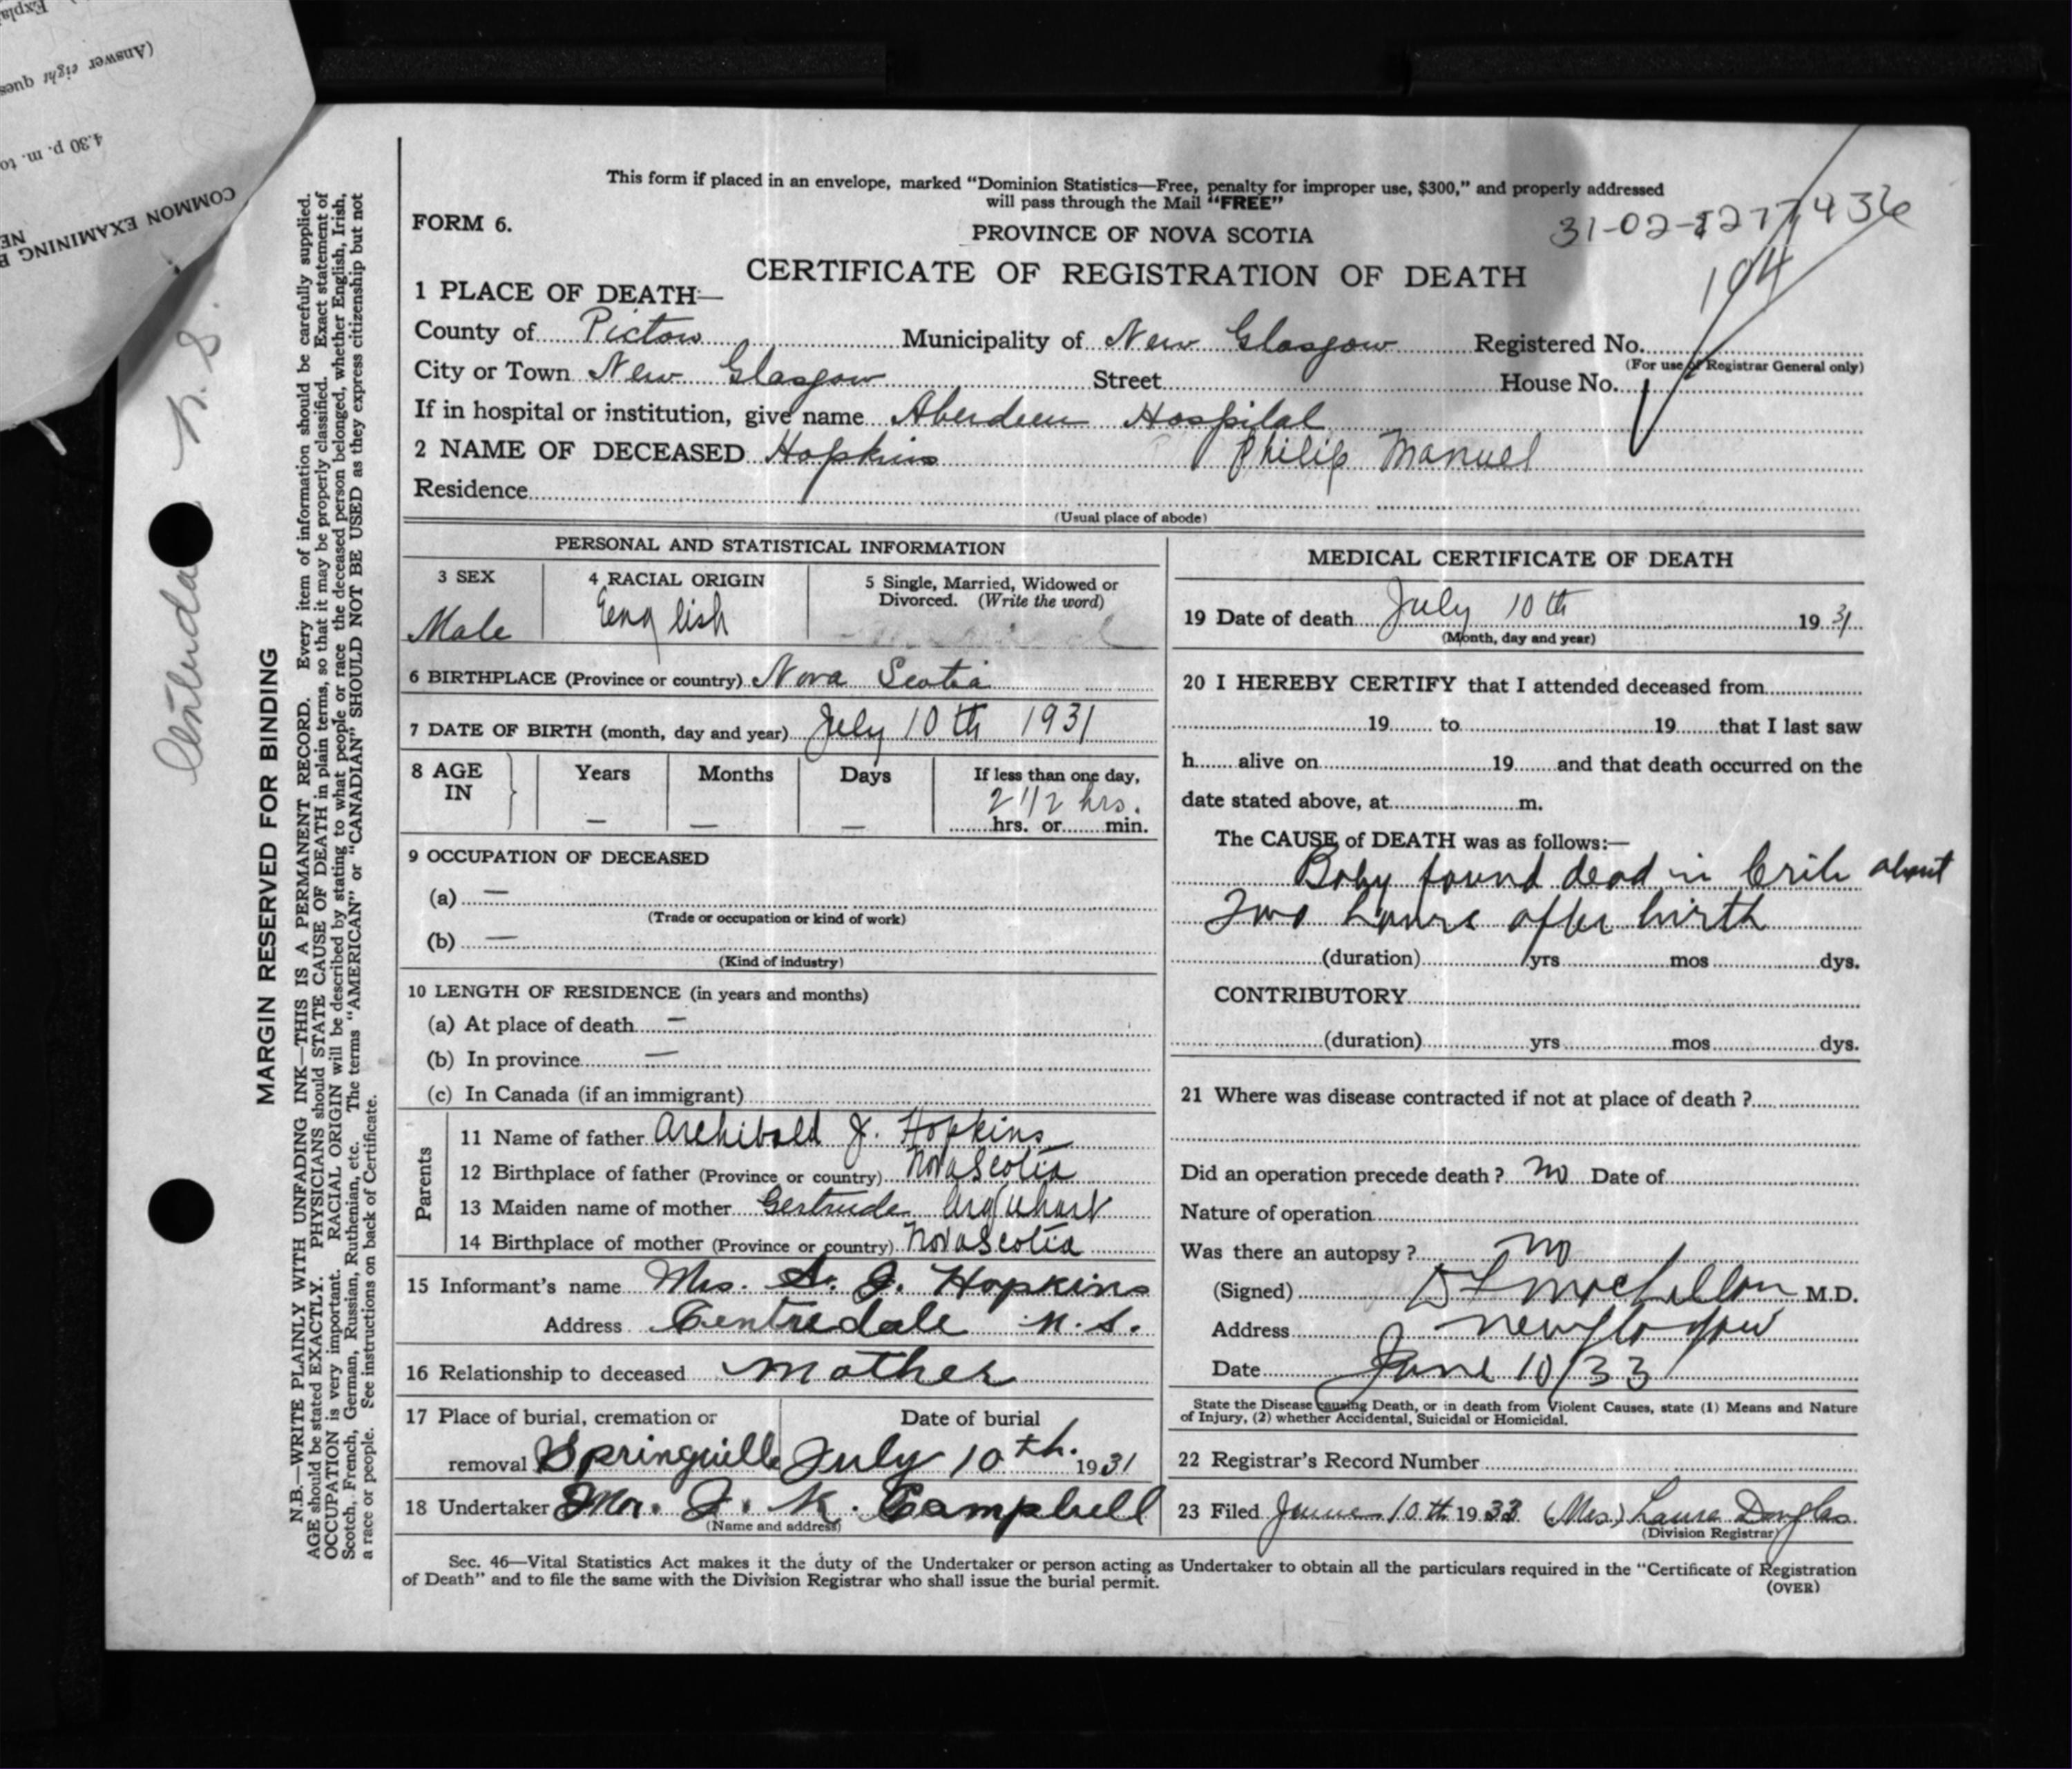 Explai
(Answer eight ques
4.30 p. m. to
COMMON EXAMINING B
NE
N. S.
MARGIN RESERVED FOR BINDING
N.B.—WRITE PLAINLY WITH UNFADING INK—THIS IS A PERMANENT RECORD. Every item of information should be carefully supplied.
AGE should be stated EXACTLY. PHYSICIANS should STATE CAUSE OF DEATH in plain terms, so that it may be properly classified. Exact statement of
OCCUPATION is very important. RACIAL ORIGIN will be described by stating to what people or race the deceased person belonged, whether English, Irish,
Scotch, French, German, Russian, Ruthenian, etc. The terms "AMERICAN" or "CANADIAN" SHOULD NOT BE USED as they express citizenship but not
a race or people. See instructions on back of Certificate.
This form if placed in an envelope, marked "Dominion Statistics—Free, penalty for improper use, $300," and properly addressed
will pass through the Mail "FREE"
FORM 6.
PROVINCE OF NOVA SCOTIA
31-02-1277436
CERTIFICATE OF REGISTRATION OF DEATH
104
1 PLACE OF DEATH—
County of Pictou Municipality of New Glasgow Registered No.
(For use of Registrar General only)
City or Town New Glasgow Street House No.
If in hospital or institution, give name Aberdeen Hospital
2 NAME OF DECEASED Hopkins Philip Manuel
Residence
(Usual place of abode)
PERSONAL AND STATISTICAL INFORMATION
3 SEX 4 RACIAL ORIGIN 5 Single, Married, Widowed or
Divorced. (Write the word)
Male English
6 BIRTHPLACE (Province or country) Nova Scotia
7 DATE OF BIRTH (month, day and year) July 10th 1931
8 AGE IN Years Months Days If less than one day,
2 1/2 hrs.
— — — hrs. or min.
9 OCCUPATION OF DECEASED
(a) —
(Trade or occupation or kind of work)
(b) —
(Kind of industry)
10 LENGTH OF RESIDENCE (in years and months)
(a) At place of death —
(b) In province —
(c) In Canada (if an immigrant)
Parents
11 Name of father Archibald J. Hopkins
12 Birthplace of father (Province or country) Nova Scotia
13 Maiden name of mother Gertrude Urquhart
14 Birthplace of mother (Province or country) Nova Scotia
15 Informant's name Mrs. A. J. Hopkins
Address Centredale N.S.
16 Relationship to deceased Mother
17 Place of burial, cremation or Date of burial
removal Springville July 10th. 1931
18 Undertaker Mr. J. K. Campbell
(Name and address)
MEDICAL CERTIFICATE OF DEATH
19 Date of death July 10th 1931
(Month, day and year)
20 I HEREBY CERTIFY that I attended deceased from
19 to 19 that I last saw
h alive on 19 and that death occurred on the
date stated above, at m.
The CAUSE of DEATH was as follows:—
Baby found dead in Crib about
two hours after birth
(duration) yrs mos dys.
CONTRIBUTORY
(duration) yrs mos dys.
21 Where was disease contracted if not at place of death ?
Did an operation precede death ? No Date of
Nature of operation
Was there an autopsy ? No
(Signed) M.D.
Address New Glasgow
Date June 10/33
State the Disease causing Death, or in death from Violent Causes, state (1) Means and Nature
of Injury, (2) whether Accidental, Suicidal or Homicidal.
22 Registrar's Record Number
23 Filed June 10th 1933 (Mrs) Laura Douglas
(Division Registrar)
Sec. 46—Vital Statistics Act makes it the duty of the Undertaker or person acting as Undertaker to obtain all the particulars required in the "Certificate of Registration
of Death" and to file the same with the Division Registrar who shall issue the burial permit.
(OVER)